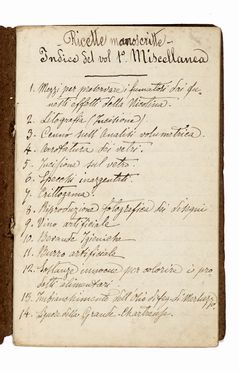 Ricette manoscritte
Indice del vol 1º Miscellanea
1. Mezzi per preservare i fumatori dai fu-
nesti effetti della Nicotina.
2. Litografia (Incisione)
3. Cenno sull'Analisi volumetrica.
4. dei vetri.
5. Incisione sul vetro.
6. Specchi inargentati
7. Crittogama.
8. Riproduzione fotografica dei disegni
9. Vino artificiale
10. Bevande Igieniche
11. Burro artificiale
12. Sostanze innocue per colorire i pro
dotti alimentari.
13. Imbianchimento dell'Olio di feg. di Merluzzo
14. Grande Chartreuse.